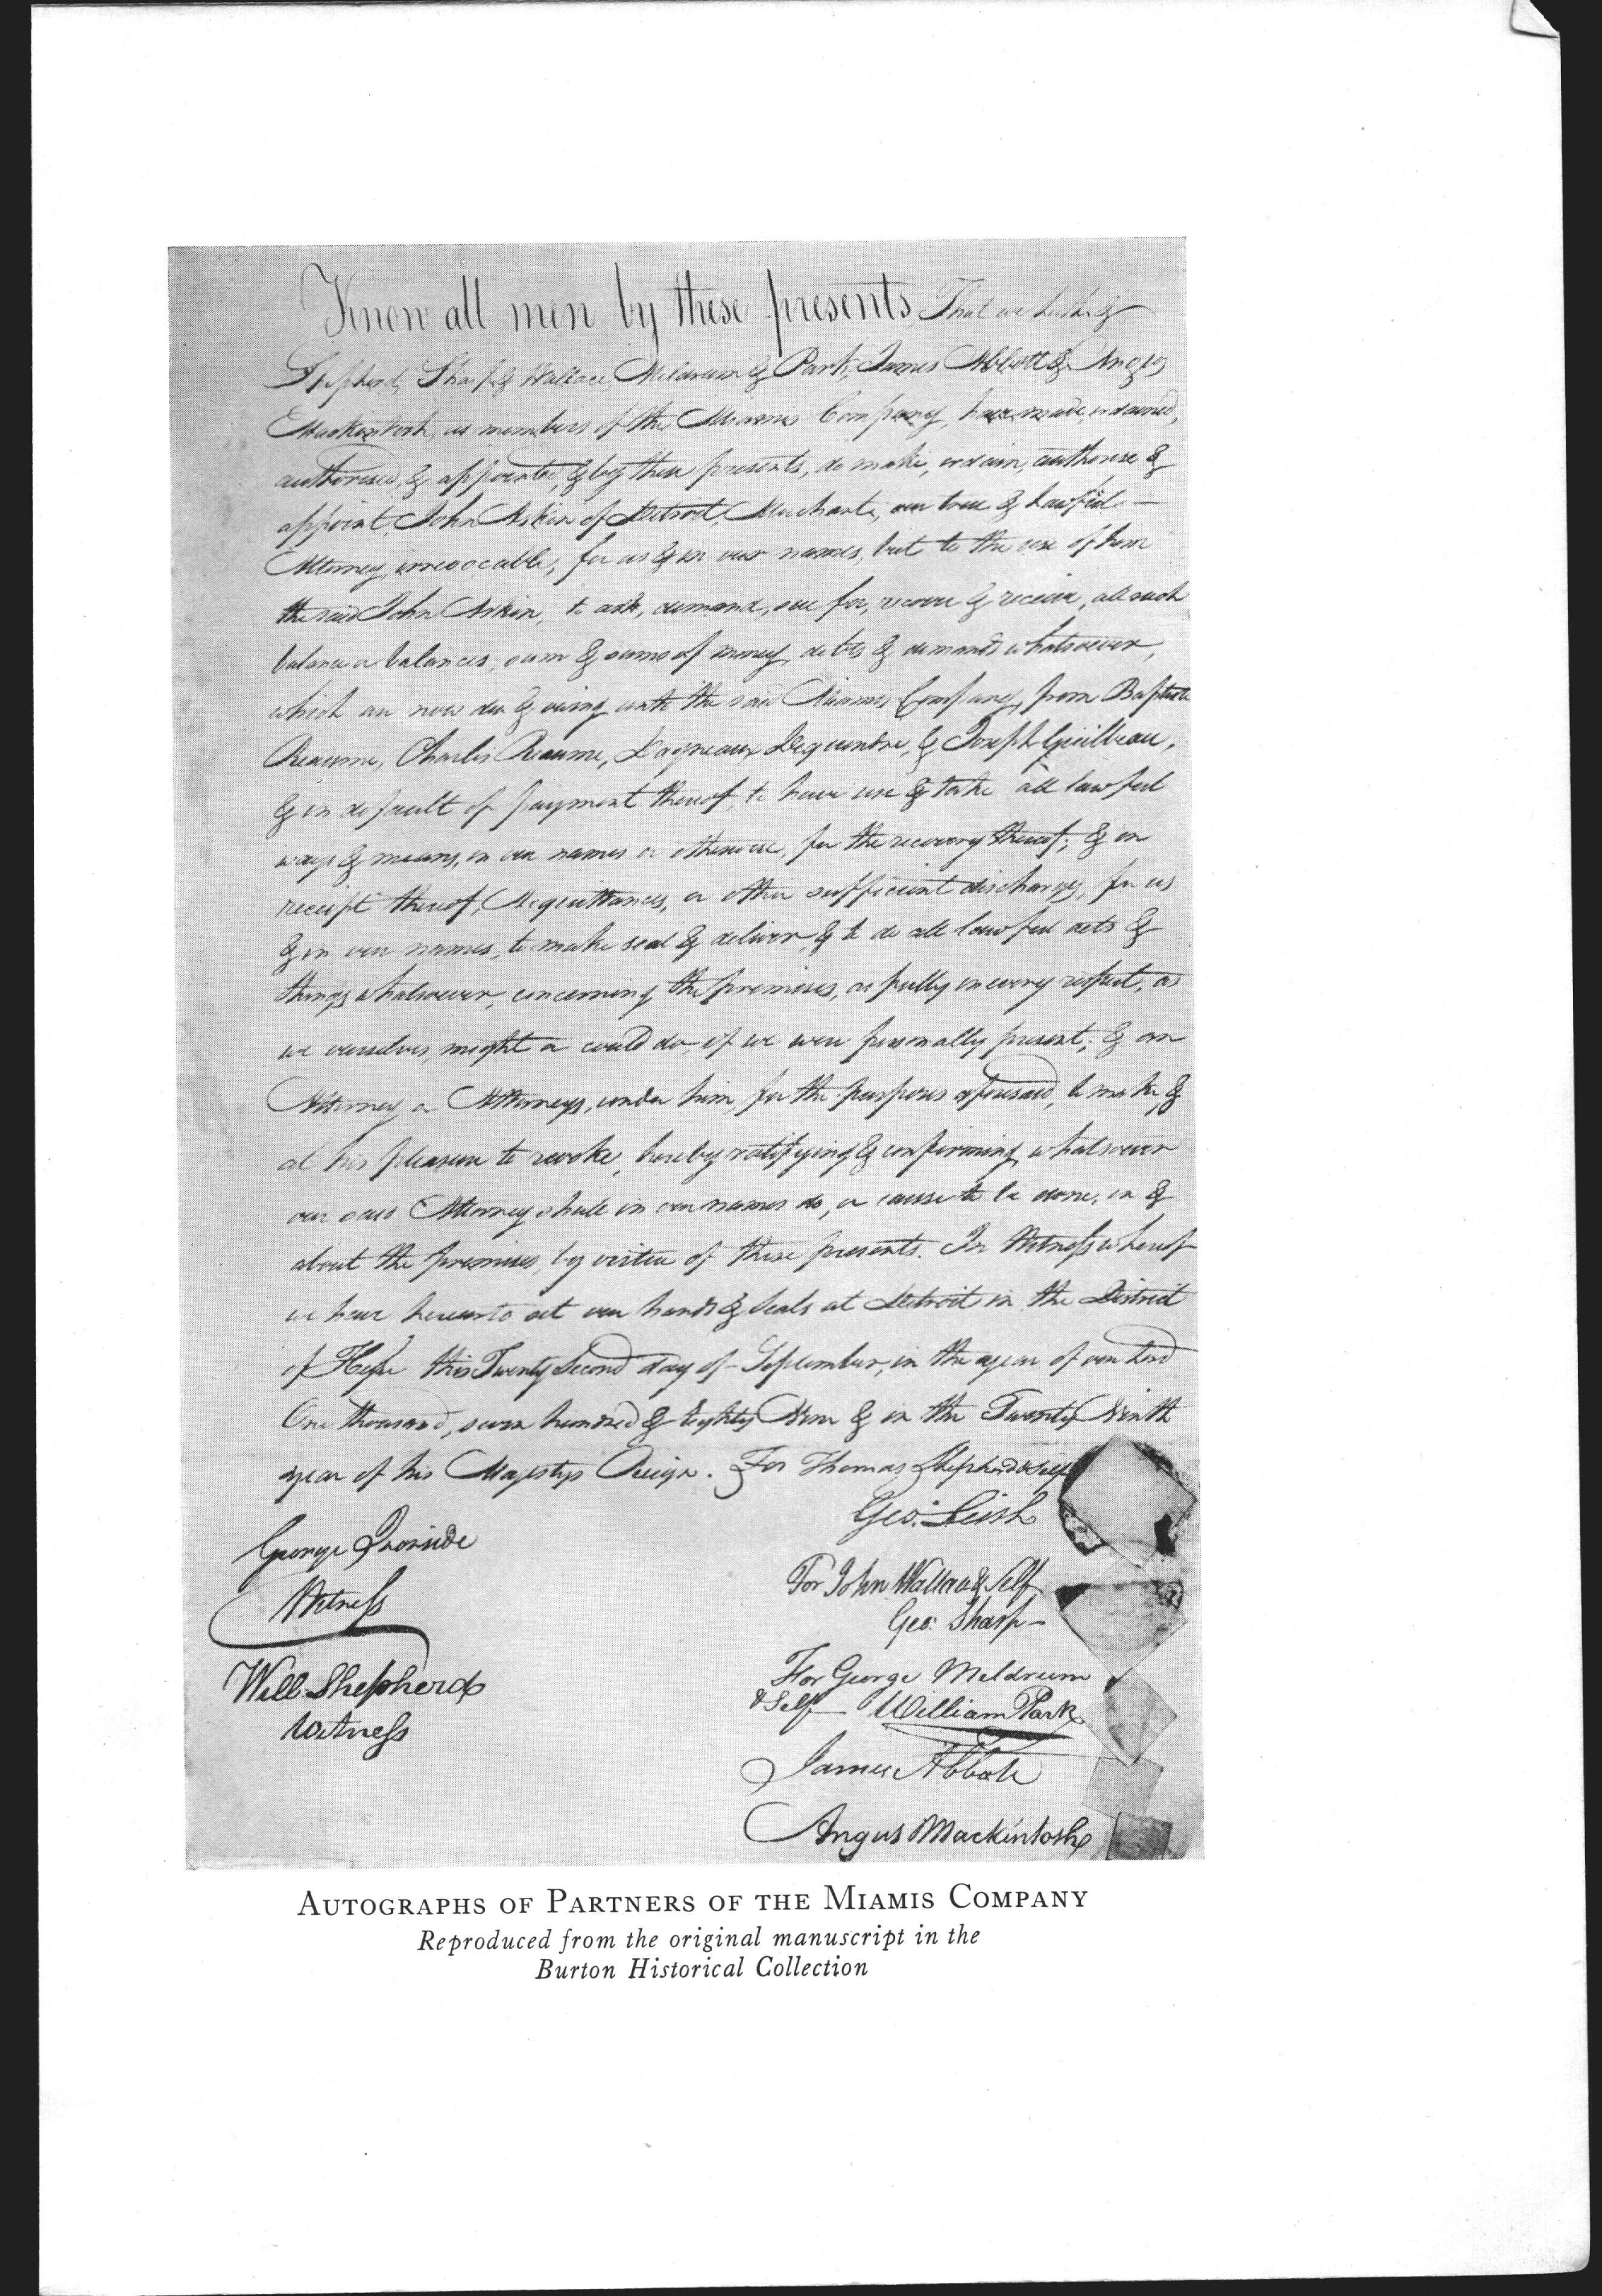 Know all men by these presents, That we Leith &
Shepherd, Sharp & Wallace, Meldrum & Park, James Abbott & Angus
Mackintosh, as members of the Miamis Company, have made, ordained,
authorised, & appointed, & by these presents, do make, ordain, authorise &
appoint, John Askin of Detroit, Merchant, our true & Lawful
Attorney, irrevocable, for us & in our names, but to the use of him
the said John Askin, to ask, demand, sue for, recover & receive, all such
balance or balances, sum & sums of money, debts & demands whatsoever,
which are now due & owing unto the said Miamis Company, from Baptiste
Reaume, Charles Reaume, Dagneaux Dequindre, & Joseph Guilbeau,
& in default of payment thereof, to have use & take all lawful
ways & means, in our names or otherwise, for the recovery thereof; & on
receipt thereof, Acquittances, or other sufficient discharges, for us
& in our names, to make seal & deliver, & to do all lawful acts &
things whatsoever, concerning the premises, as fully in every respect, as
we ourselves, might or could do, if we were personally present; & an
Attorney or Attorneys, under him for the purposes aforesaid, to make, &
at his pleasure to revoke, hereby ratifying & confirming whatsoever
our said Attorney shall in our names do, or cause to be done, in &
about the premises, by virtue of these presents. In Witness whereof
we have hereunto set our hands & Seals at Detroit in the District
of Hesse this Twenty Second day of September, in the year of our Lord
One thousand, seven hundred & Eighty Nine & in the Twenty Ninth
year of his Majestys Reign. For Thomas Shepherd & Self
Geo: Leith
George Ironside
Witness
For John Wallace & Self
Geo: Sharp
Will Shepherd
Witness
For George Meldrum
& Self William Park
James Abbott
Angus Mackintosh
AUTOGRAPHS OF PARTNERS OF THE MIAMIS COMPANY
Reproduced from the original manuscript in the
Burton Historical Collection